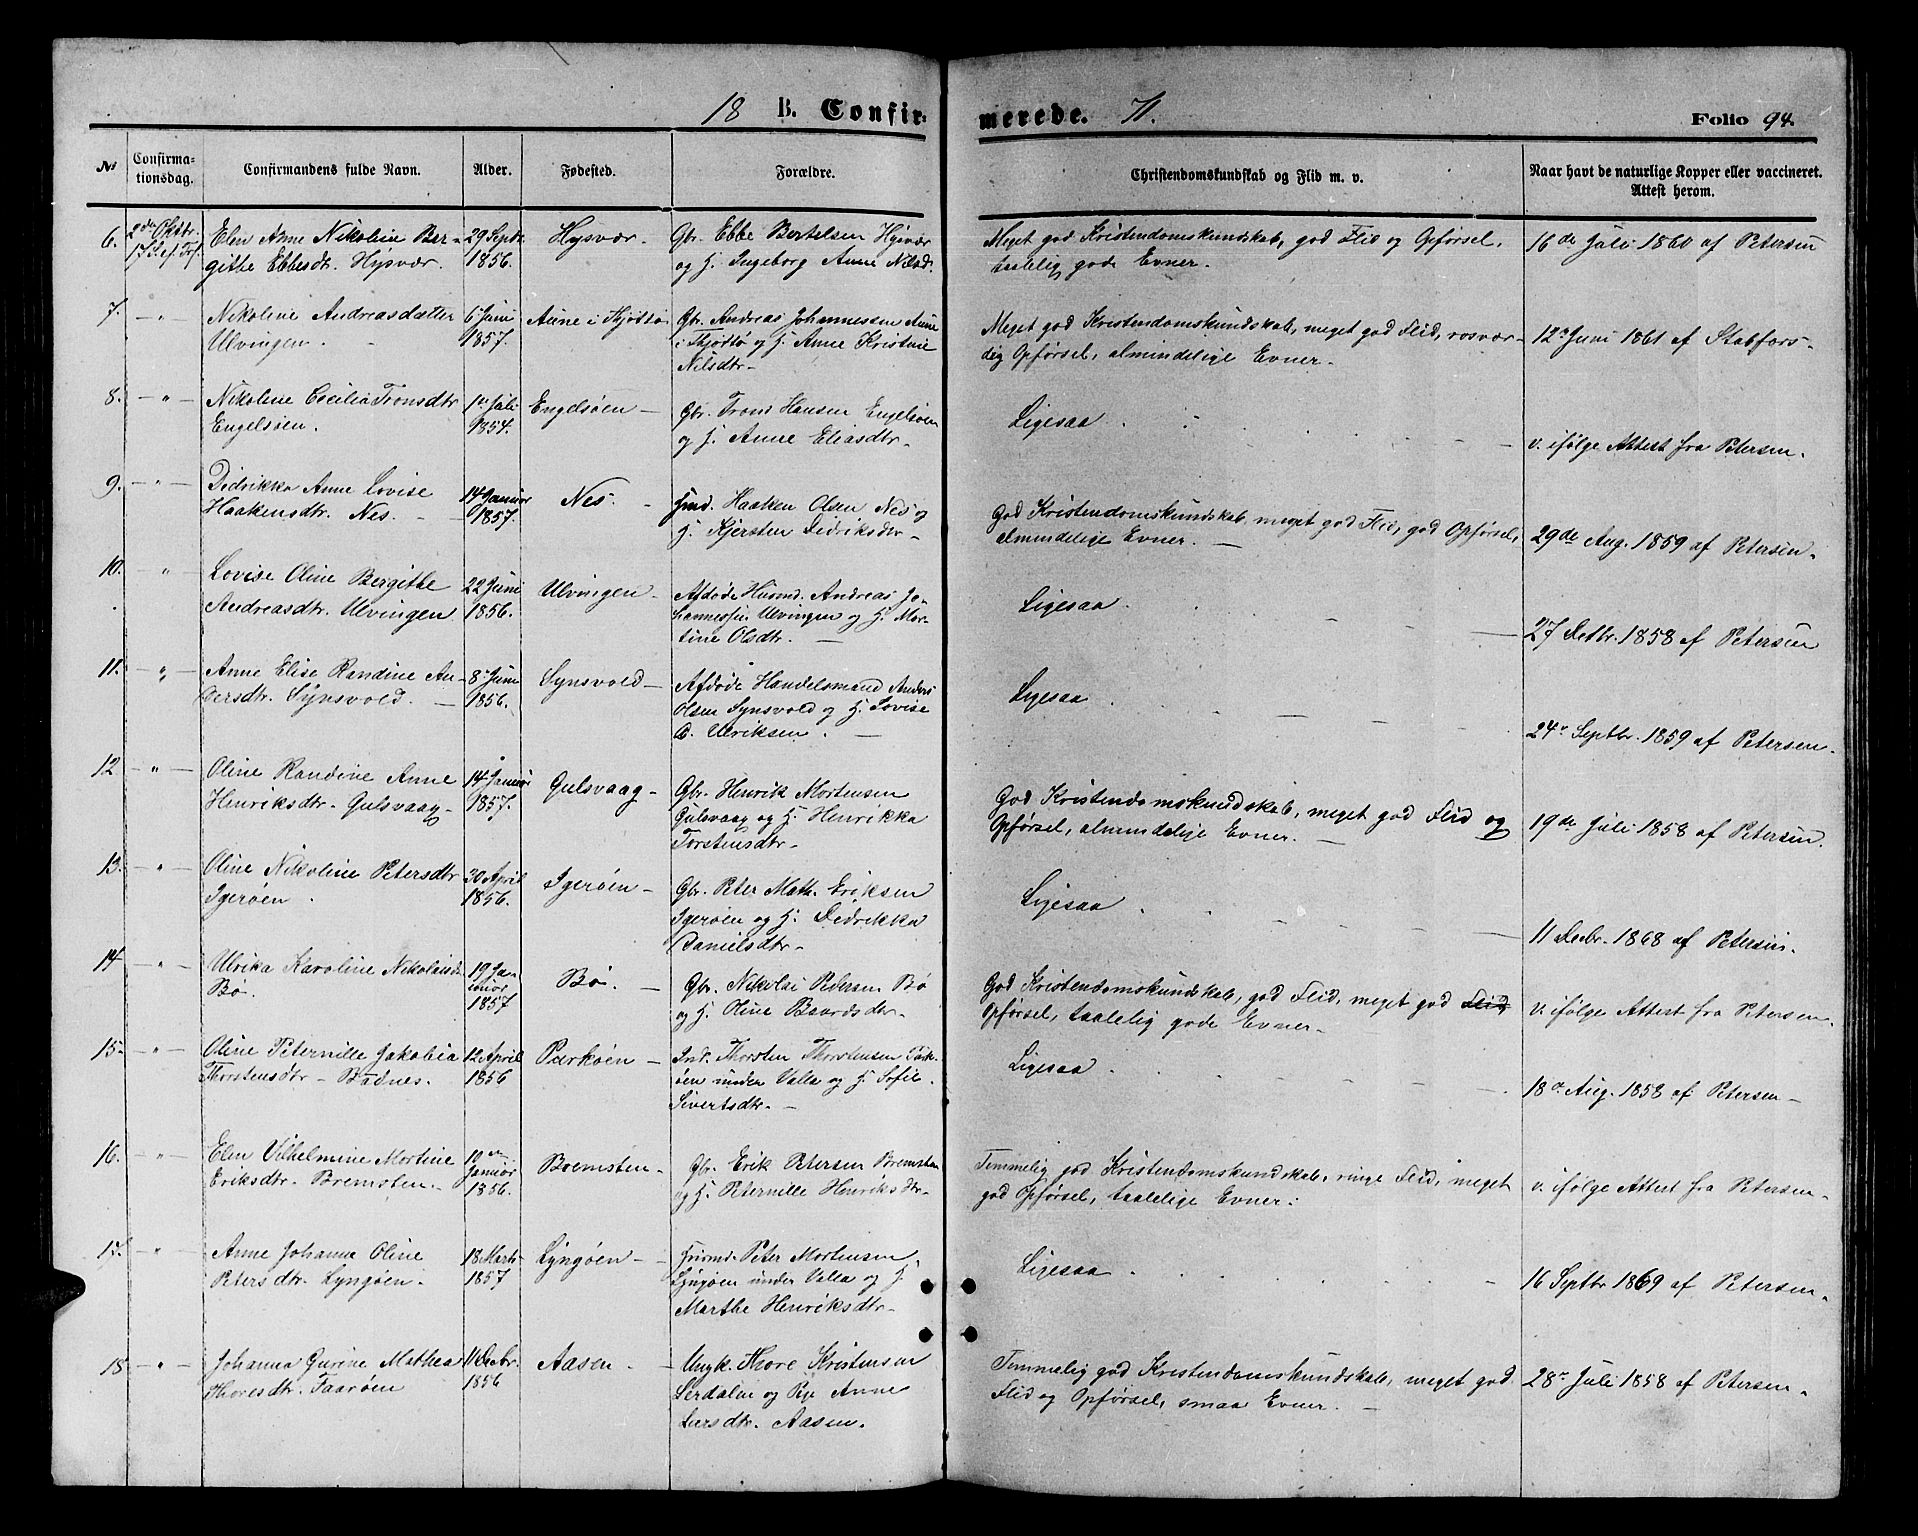 18 B. Confirmerede. 71. Folio 94.
No Confirmationsdag. Confirmandens fulde Navn. Alder. Fødested. Forældre. Christendomskundskab og Flid m. v. Naar havt de naturlige Kopper eller vaccineret. Attest herom.
6. 2den Oktbr. Elen Anne Nikoline Ber- 29 Septr. Hysvær. Gbr. Ebbe Bertelsen Hysvær Meget god Kristendomskundskab, god Flid og Opførsel, 16de Juli 1860 af Petersen
17 S. ef. Tref. githe Ebbesdtr. Hysvær. 1856. og H. Ingeborg Anne Nilsd. taalelig gode Evner.
7. — " — Nikoline Andreasdatter 6 Juni Aune i Thjøttø Gbr. Andreas Johannessen Aune Meget god Kristendomskundskab, meget god Flid, rosvær- 12 Juni 1861 af Stabfors-
Ulvingen. 1857. i Thjøttø og H. Anne Kristine dig Opførsel, almindelige Evner.
Nilsdtr.
8. — " — Nikoline Cecilia Tronsdtr 1 Juli Engelsøen — Gbr. Tron Hansen Engelsøen Ligesaa
Engelsøen. 1854. og H. Anne Eliasdtr. v. ifølge Attest fra Petersen.
9. — " — Didrikka Anne Lovise 14 Januar Nes. — Hmd. Haaken Olsen Nes og God Kristendomskundskab, meget god Flid, god Opførsel,
Haakensdtr. Nes. 1857. H. Kjersten Dedriksdtr. almindelige Evner. 29de Aug. 1859 af Petersen.
10. " — Lovise Oline Bergithe 22 Juni Ulvingen — Afdøde Husmd. Andreas Jo- Ligesaa
Andreasdtr. Ulvingen 1856. hannessen Ulvingen og H. Mor-
tine Olsdtr. — 27 Decbr. 1858 af Petersen
11. — " — Anne Elise Randine An- 8 Juni Synsvold — Afdøde Handelsmand Anders Ligesaa
dersdtr. Synsvold. — 1856. Olsen Synsvold og H. Lovise
C. Ulriksen. — 24 Septbr. 1859 af Petersen.
12 — " — Oline Randine Anne 14 Januar Gulsvaag — Gbr. Henrik Mortensen God Kristendomskundskab, meget god Flid og
Henriksdtr. Gulsvaag 1857. Gulsvaag og H. Henrikka Opførsel, almindelige Evner. — 19de Juli 1858 af Petersen.
Torstensdtr.
13. — " — Oline Nikoline Petersdtr 30 April Igerøen — Gbr. Peter Math. Eriksen Ligesaa
Igerøen. 1856. Igerøen og H. Dedrikka
Danielsdtr. 11 Decbr. 1868 af Petersen.
14 — " — Ulrika Karoline Nikolaisd. 19 Ja- Bø. — Gbr. Nikolai Pedersen Bø God Kristendomskundskab, god Flid, meget god Flid
Bø. nuar og H. Oline Baardsdtr. Opførsel, taalelig gode Evner. v. ifølge Attest fra Petersen.
1857
15. — " — Oline Peternille Jakobia 12 April Purkøen — Ind. Thorsten Thorstensen Purk- Ligesaa
Thorstensdtr. Badnes. 1856 øen under Valla og H. Sofie
Sivertsdtr. — 18 Aug. 1858 af Petersen —
16. " — Elen Vilhelmine Mortine 19 Januar Bremsten. Gbr. Erik Petersen Bremsten Temmelig god Kristendomskundskab, ringe Flid, meget
Eriksdtr. Bremsten. 1856. og H. Peternille Henriksdtr. god Opførsel, taalelige Evner. v. ifølge Attest fra Petersen.
17. " — Anne Johanne Oline 18 Marts Lyngøen — Husmd. Peter Mortensen Ligesaa
Petersdtr. Lyngøen. 1857 Lyngøen under Valla og H. 16 Septbr 1869 af Petersen.
Marthe Henriksdtr.
18 — " — Johanna Gurine Mathea 11 Decbr. Aasen. — Ungk. Thore Kristensen Temmelig god Kristendomskundskab, meget god 28 Juli 1858 af Petersen.
Thoresdtr. Faarøen 1856 Lerdalen og Pige Anne Flid og Opførsel, smaa Evner. —
Larsdtr. Aasen.